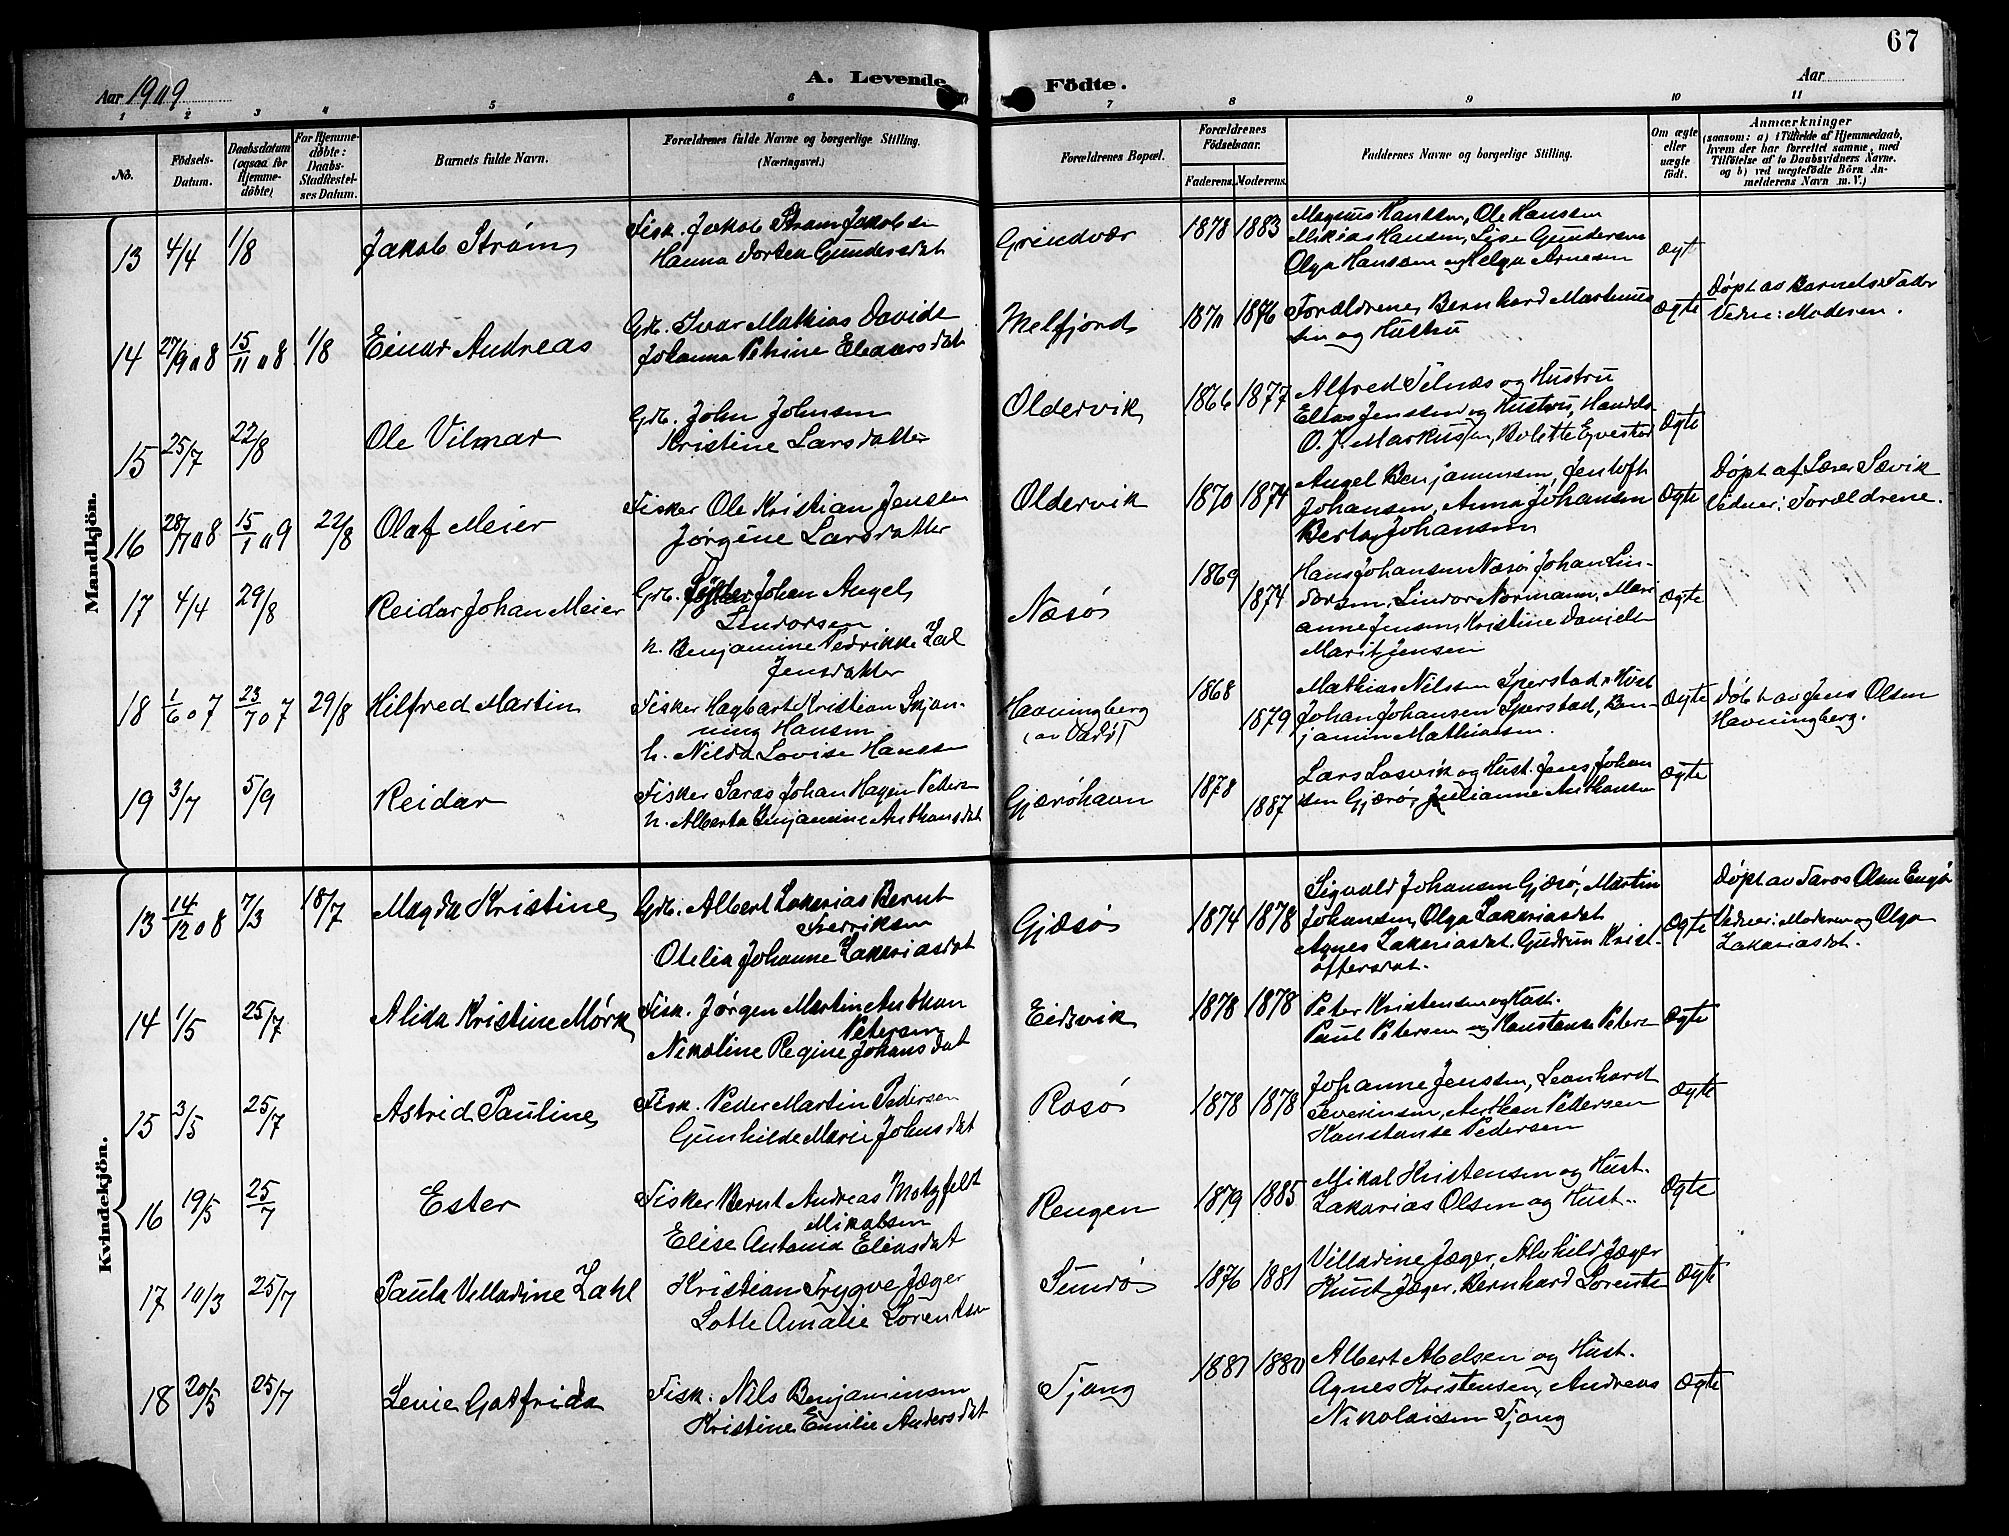 67
Aar 1909
A. Levende Födte.
Aar
1 2 3 4 5 6 7 8 9 10 11
No.
Födsels-Datum.
Daabsdatum (ogsaa for Hjemmedöbte).
For Hjemmedöbte: Daabs-Stadfæstelses Datum.
Barnets fulde Navn.
Forældrenes fulde Navne og borgerlige Stilling.
(Næringsvei.)
Forældrenes Bopæl.
Forældrenes Födselsaar.
Faderens. Moderens.
Faddernes Navne og borgerlige Stilling.
Om ægte eller uægte födt.
Anmærkninger
(saasom: a) i Tilfælde af Hjemmedaab,
hvem der har forrettet samme, med
Tilföielse af to Daabsvidners Navne.
og b) ved uægtefödte Börn An-
melderens Navn m. V.)
Mandkjön.
13 4/4 1/8 Jakob Strøm
Fisk. Jakob Strøm Jakobsen
Hanna Dortea Gundersdat
Grindvær 1878 1883
Magnus Hanssen, Ole Hanssen
Mikias Hansen, Lise Gundersen
Olga Hanssen og Helga Arnesen
Ægt
14 27/9 08 15/11 08 1/8 Einar Andreas
Grb. Ivar Mathias Davids
Johanna Petrine Eleasersdat
Melfjord 1870 1876
Forældrene, Bernhard Martinus
sen og Hustru
Ægte
Døpt av Barnets Fader
Vidne: Moderen.
15 25/7 22/8 Ole Vilmar
Grb. John Johnsen
Kristine Larsdatter
Oldervik 1866 1877
Alfred Selnæs og Hustru
Elias Jenssen og Hustru, Handels-
O. J. Markussen, Bolette
Ægte
16 28/7 08 15/1 09 22/8 Olaf Meier
Fisker Ole Kristian Jensen
Jørgine Larsdatter
Oldervik 1870 1874
Angel Benjaminsen, Jentoft
Johansen, Anna Johansen
Berta Johansen
Ægte
Døpt af Lærer Sævik
Vidner: Forældrene.
17 4/4 29/8 Reidar Johan Meier
Grb. Johan Angel
Lindorsen
h. Benjamine Fedrikke Zal
Jensdatter
Næsø 1869 1874
Hans Johansen Næsø, Johan Lin-
dorsen, Lindor Normann, Mari
anne Jensen, Kristine Daniels
Marit Jensen
Ægte
18 1/6 07 23/7 07 29/8 Hilfred Martin
Fisker Hagbart Kristian Skjan-
ning Hansen
h. Nilda Lovise Hanssen
Havningberg
(av Vadsø)
1868 1879
Mathias Nilssen Sperstad, Hust
Johan Johansen Sperstad, Ben-
jamin Mathiassen.
Ægte
Døbt av Jens Olsen
Havningberg.
19 3/7 5/9 Reidar
Fisker Saras Johan Hagen Peters
h. Alberta Benjamine Anthonsdat
Gjærøhavn 1878 1887
Lars Losvik og Hust. Jens Johan
sen Gjærø, Julianne Anthonsen
Ægte
Kvindekjön.
13 14/12 08 7/3 18/7 Magda Kristine
Grb. Albert Zakarias Bernt
Fredriksen
Otelia Johanne Zakariasdat
Gjæsø 1874 1878
Sigvald Johansen Gjærø, Martin
Johansen, Olga Zakariasdat
Agnes Zakariasdat. Gudrun Krist-
offersdat.
Ægte
Døpt av Saros Olsen Engø
Vidner: Moderen og Olga
Zakariasdat.
14 1/5 25/7 Alida Kristine Mørk
Fisk. Jørgen Martin Anthon
Petersen
Nikoline Regine Johansdat
Eidsvik 1878 1878
Peter Kristensen og Hust.
Paul Petersen og Konstanse Peters
Ægte
15 3/5 25/7 Astrid Pauline
Fisk. Peder Martin Pedersen
Gunhilde Marie Johnsdat
Rosø 1878 1878
Johanne Jenssen, Leonhard
Severinsen, Anthon Pedersen
Konstanse Pedersen
Ægte
16 19/5 25/7 Ester
Fisker Bernt Andreas Motzfelt
Mikalsen
Elise Antonia Eliasdat
Rengen 1879 1885
Mikal Kristensen og Hust.
Zakarias Olsen og Hust.
Ægte
17 10/3 25/7 Paula Villadine Zahl
Kristian Trygve Jæger
Lotte Amalie Lorentsen
Sundø 1876 1881
Villadine Jæger, Alvhild Jæger
Knut Jæger, Bernhard Lorents
Ægte
18 20/5 25/7 Lenie Gotfrida
Fisk. Nils Benjaminsen
Kristine Emilie Andersdat
Tjong 1881 1880
Albert Abelsen og Hust.
Agnes Kristensen, Andreas
Nikolaisen Tjong
Ægte